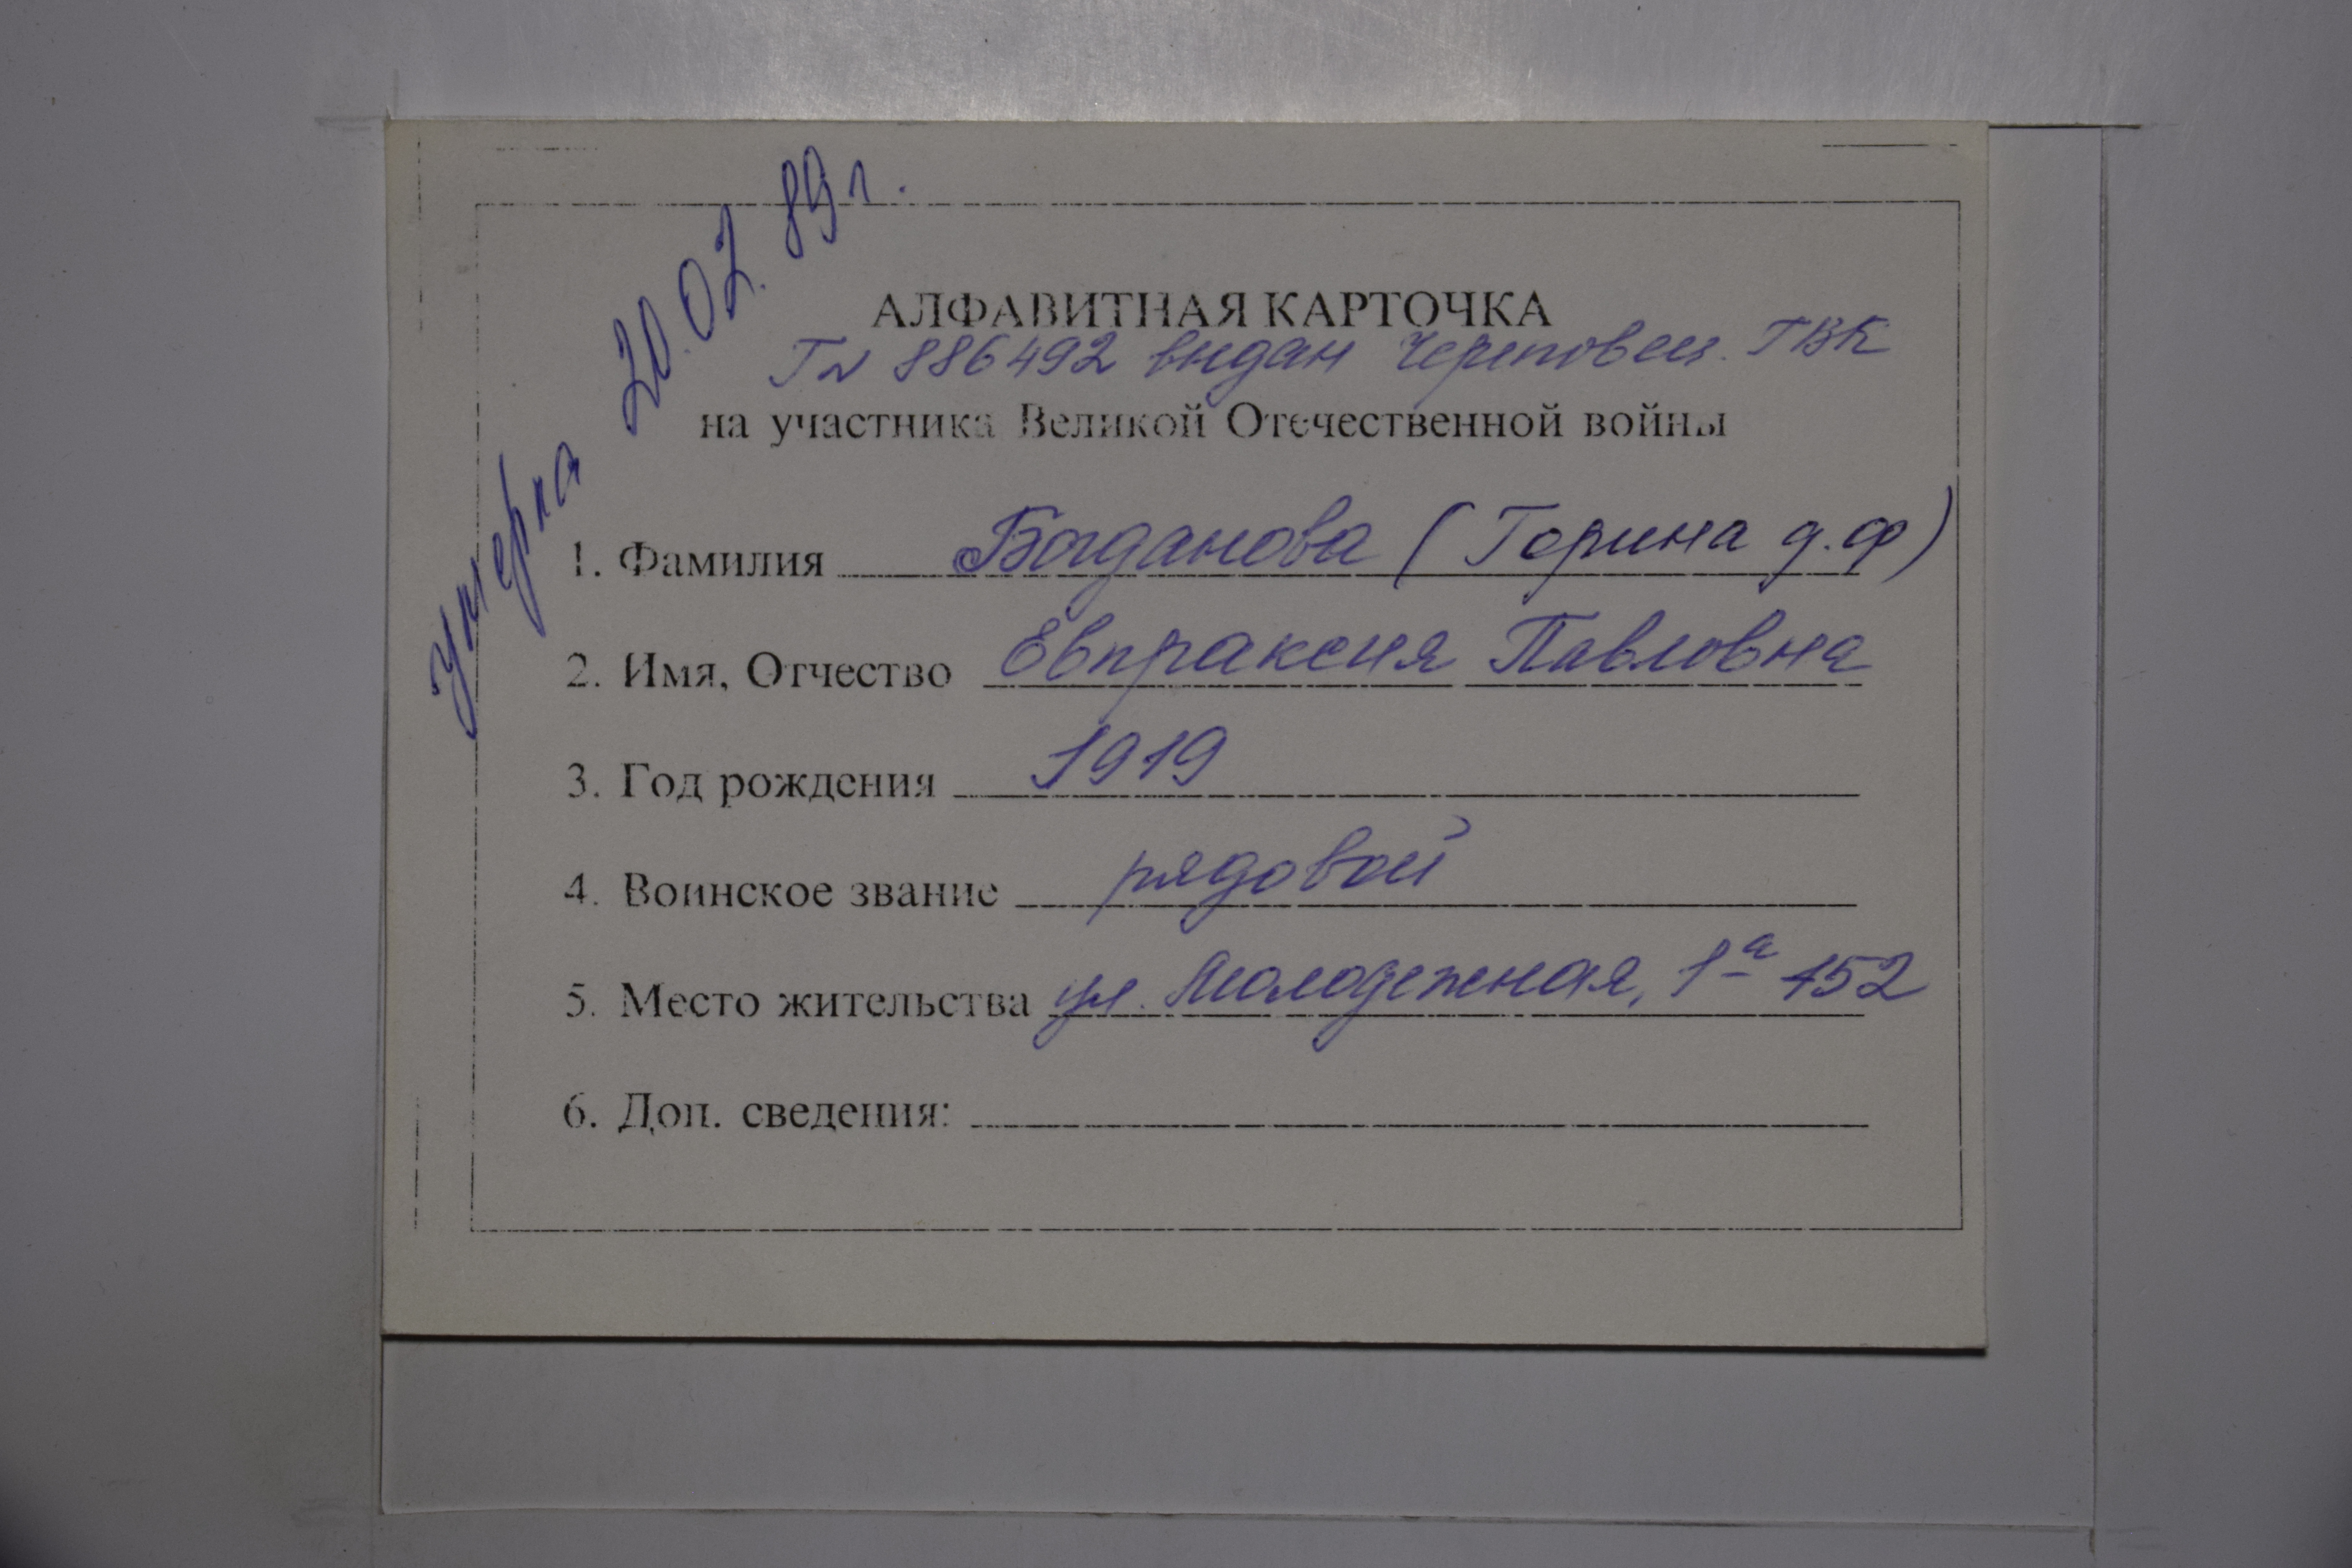 умерла 20.02.89 г.
АЛФАВИТНАЯ КАРТОЧКА
Гл 886492 выдан Череповец. ГВК
на участника Великой Отечественной войны
1. Фамилия Богданова (Горина д.ф)
2. Имя, Отчество Евпраксия Павловна
3. Год рождения 1919
4. Воинское звание рядовой
5. Место жительства ул. Молодежная, 1а 152
6. Доп. сведения: